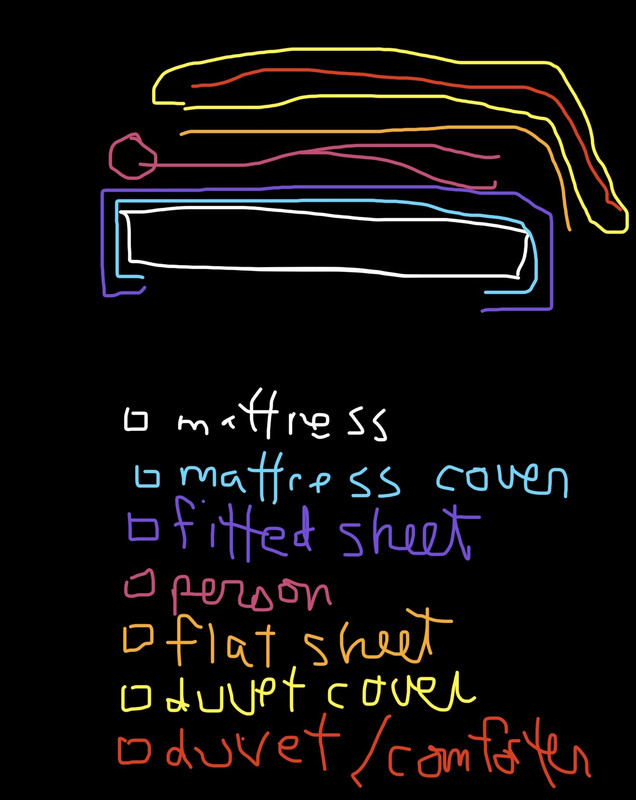 mattress
mattress cover
fitted sheet
person
flat sheet
duvet cover
duvet/comforter